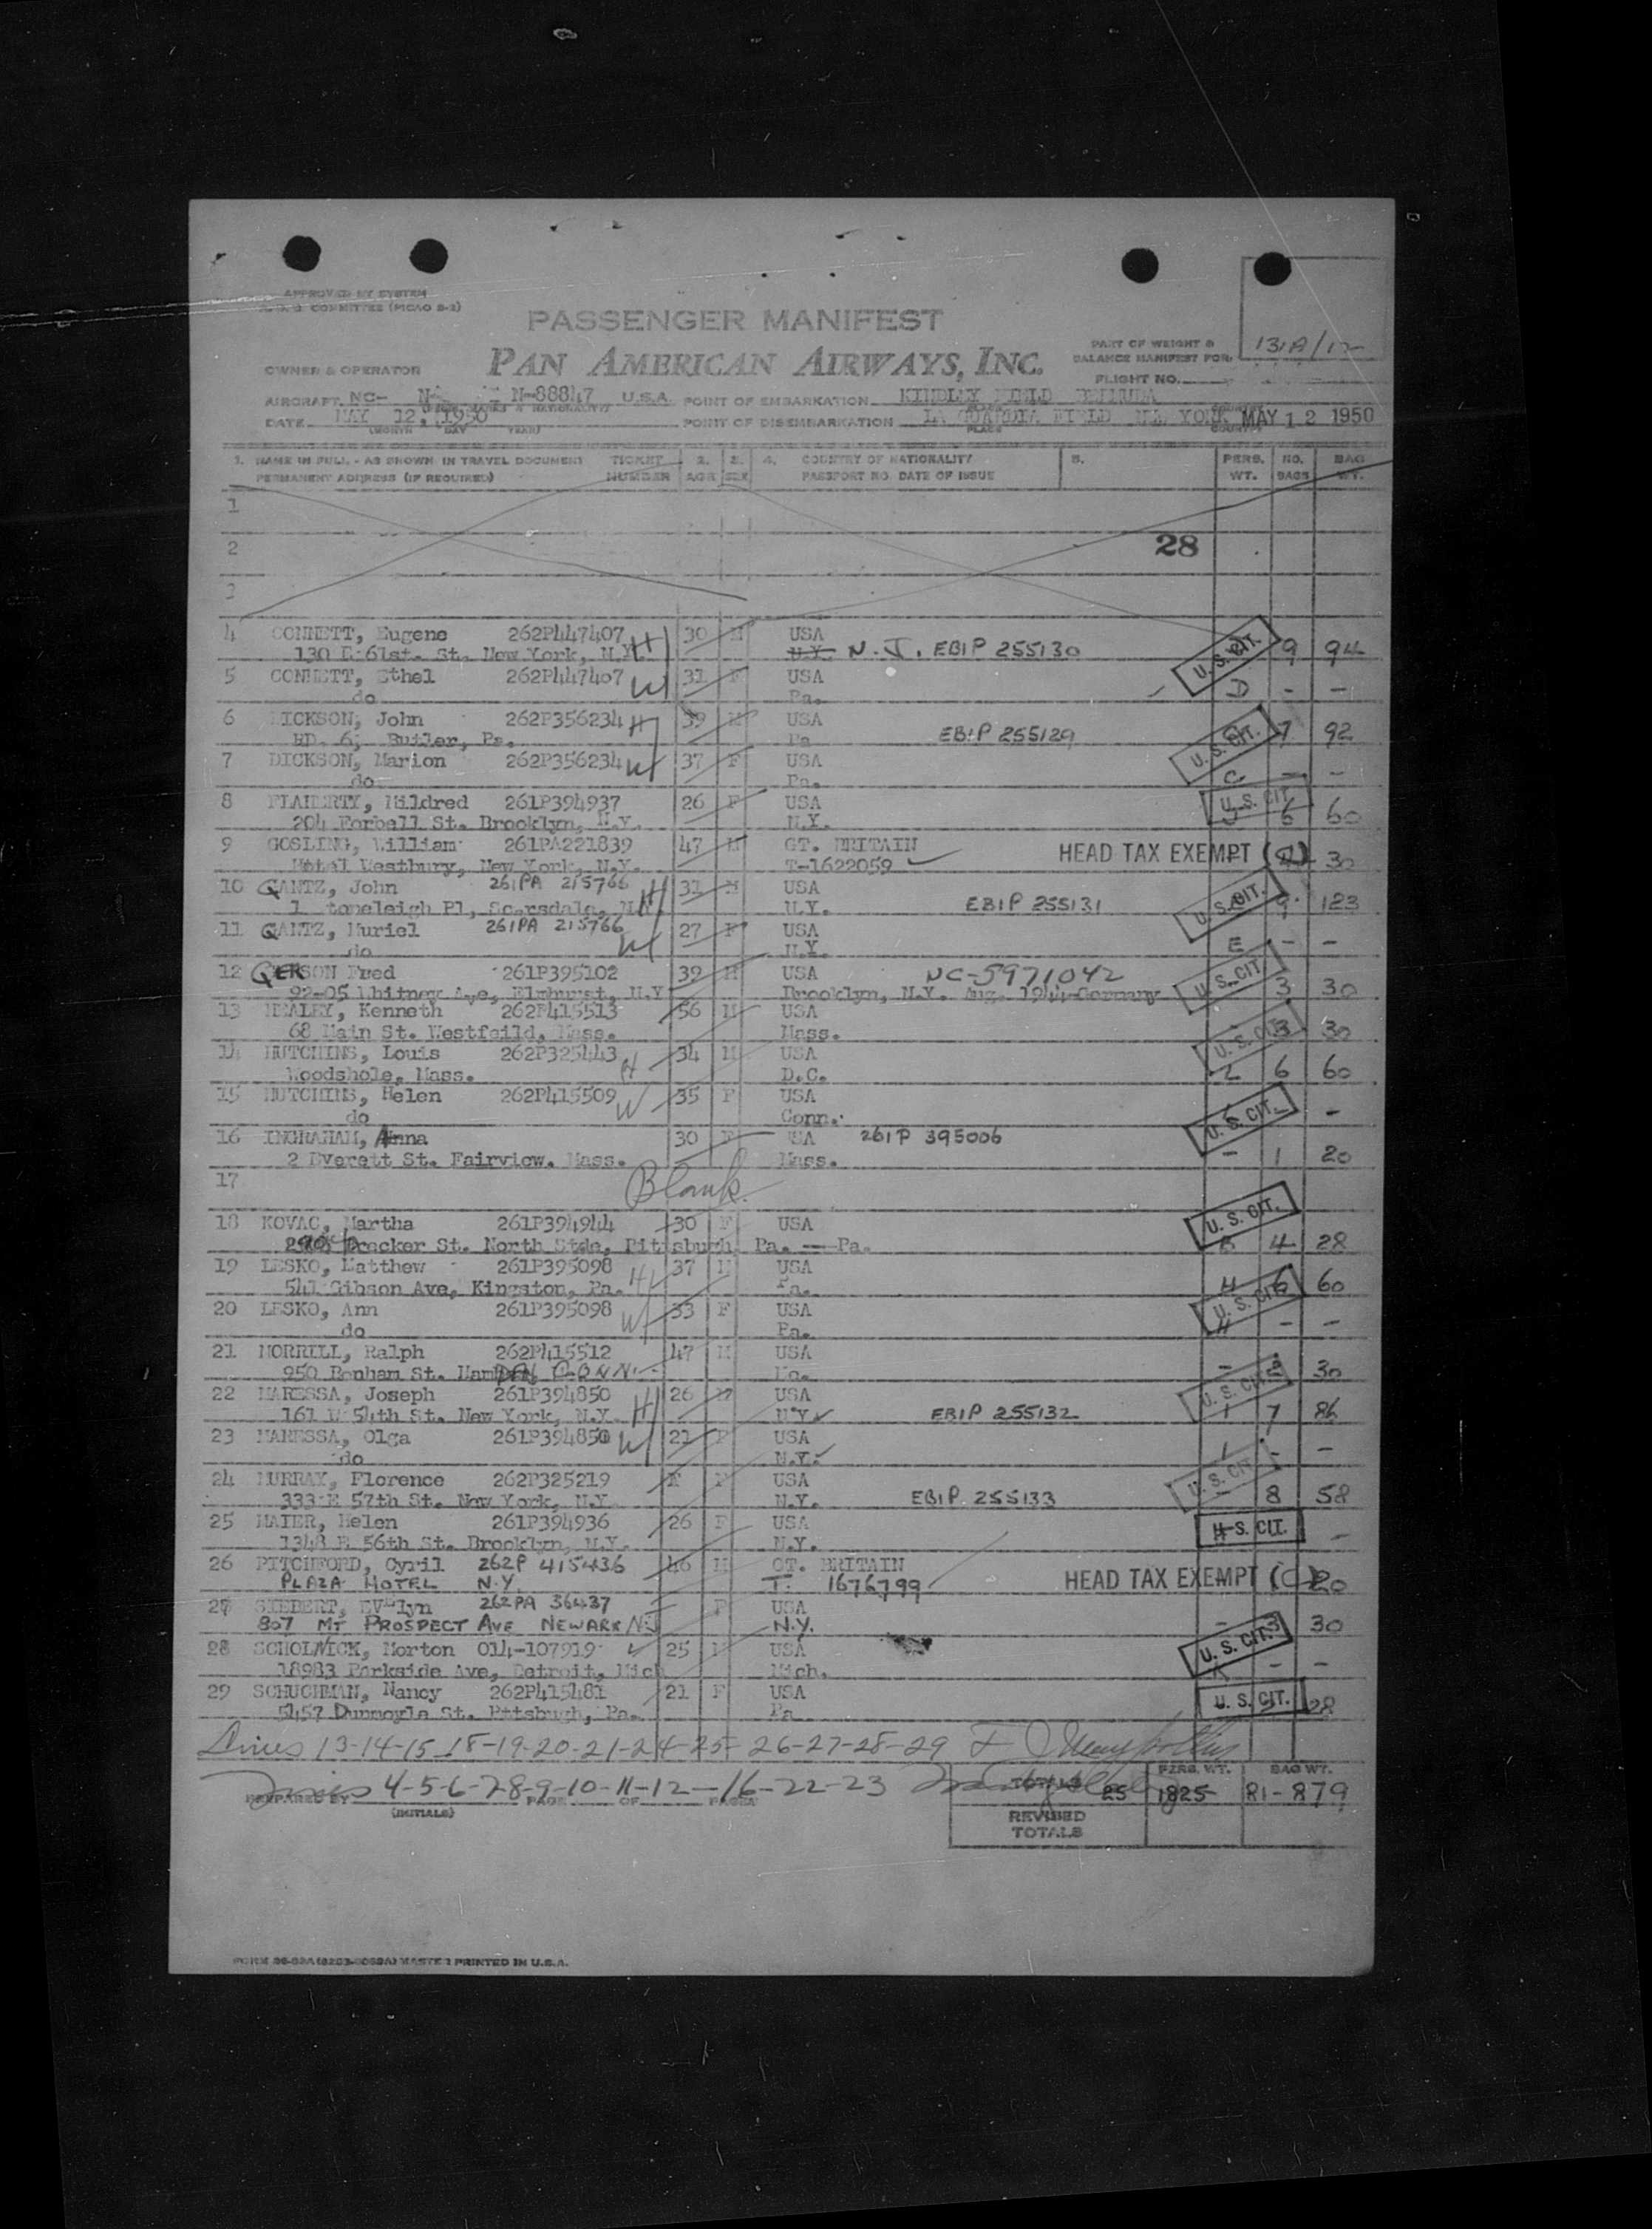 APPROVED BY SYSTEM
COMMITTEE (PICAO S-2)
PASSENGER MANIFEST
PAN AMERICAN AIRWAYS, INC.
PART OF WEIGHT &
BALANCE MANIFEST FOR:
131A/12
FLIGHT NO.
OWNER & OPERATOR
AIRCRAFT NC- N-88847 U.S.A. POINT OF EMBARKATION KINDLEY FIELD BERMUDA
DATE MAY 12, 1950 POINT OF DISEMBARKATION LA GUARDIA FIELD NEW YORK MAY 12 1950
(MONTH DAY YEAR) PLACE COUNTRY
1. NAME IN FULL - AS SHOWN IN TRAVEL DOCUMENT TICKET 2. 3. 4. COUNTRY OF NATIONALITY 5. PERS. NO. BAG
PERMANENT ADDRESS (IF REQUIRED) NUMBER AGE SEX PASSPORT NO. DATE OF ISSUE WT. BAGS WT.
1
2 28
3
4 CONNETT, Eugene 262P447407 H 30 M USA U.S. CIT. 9 94
130 E 61st. St. New York, N.Y. N.Y. N.J. EBIP 255130
5 CONNETT, Ethel 262P447407 W 31 F USA D - -
do Pa.
6 DICKSON, John 262P356234 H 39 M USA U.S. CIT. 7 92
RD. 6, Butler, Pa. Pa EBIP 255129
7 DICKSON, Marion 262P356234 W 37 F USA C - -
do Pa.
8 FLAHERTY, Mildred 261P394937 26 F USA U.S. CIT. 6 60
204 Forbell St. Brooklyn, N.Y. N.Y.
9 GOSLING, William 261PA221839 47 M GT. BRITAIN HEAD TAX EXEMPT 30
Hotel Westbury, New York, N.Y. T-1622059
10 GANTZ, John 261PA 215766 H 31 M USA U.S. CIT. 9 123
1 Stoneleigh Pl, Scarsdale, N.Y. N.Y. EBIP 255131
11 GANTZ, Muriel 261PA 215766 W 27 F USA E - -
do N.Y.
12 GERSON Fred 261P395102 39 M USA NC-5971042 U.S. CIT. 3 30
92-05 Whitney Ave, Elmhurst, N.Y Brooklyn, N.Y. Aug. 1944 Germany
13 HEALEY, Kenneth 262P415513 56 M USA U.S. CIT. 3 30
68 Main St. Westfeild, Mass. Mass.
14 HUTCHINS, Louis 262P325443 H 34 M USA L 6 60
Woodshole, Mass. D.C.
15 HUTCHINS, Helen 262P415509 W 35 F USA U.S. CIT. -
do Conn.
16 INGRAHAM, Anna 30 F USA 261P 395006
2 Everett St. Fairview. Mass. Mass. - 1 20
17 Blank.
18 KOVAC, Martha 261P394944 30 F USA U.S. CIT.
Drecker St. North Side, Pittsburgh, Pa. — Pa. B 4 28
19 LESKO, Matthew 261P395098 H 37 M USA
541 Gibson Ave, Kingston, Pa. Pa. H 6 60
20 LESKO, Ann 261P395098 W 33 F USA U.S. CIT. H - -
do Pa.
21 MORRILL, Ralph 262P415512 47 M USA
950 Benham St. HamDEN CONN. 30
22 MARESSA, Joseph 261P394850 H 26 M USA U.S. CIT.
161 W 54th St. New York, N.Y. N.Y. EBIP 255132 7 86
23 MARESSA, Olga 261P394850 W 21 F USA - -
do N.Y.
24 MURRAY, Florence 262P325219 F F USA U.S. CIT.
333 E 57th St. New York, N.Y. N.Y. EBIP 255133 8 58
25 MAIER, Helen 261P394936 26 F USA U.S. CIT. -
1348 E 56th St. Brooklyn, N.Y. N.Y.
26 PITCHFORD, Cyril 262P 415436 46 M GT. BRITAIN
PLAZA HOTEL N.Y. T. 1676799 HEAD TAX EXEMPT (C) 20
27 SIEBERT, Evelyn 262PA 36437 F USA
807 MT PROSPECT AVE NEWARK NJ N.Y. - 3 30
28 SCHOLNICK, Morton 014-107919 25 M USA U.S. CIT.
18983 Parkside Ave, Detroit, Mich Mich. - -
29 SCHUCHMAN, Nancy 262P415481 21 F USA U.S. CIT. 28
5457 Dunmoyle St. Pttsburgh, Pa. Pa
Lines 13-14-15-18-19-20-21-24-25- 26-27-28-29
Lines 4-5-6-7-8-9-10-11-12-16-22-23
PREPARED BY (INITIALS) PAGE OF PAGES
TOTALS 25 PERS. WT. 1825 BAG WT. 81-879
REVISED
TOTALS
PRINTED IN U.S.A.